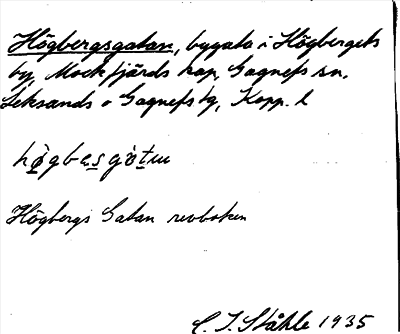 Högbergsgatan, bygata i Högbergets
by, Mockfjärds kap, Gagnefs sn,
Leksands o Gagnefs tg, Kopp. l
høgbesgòtɯ
Högbergs Gatan revboken
C. I. Ståhle 1935